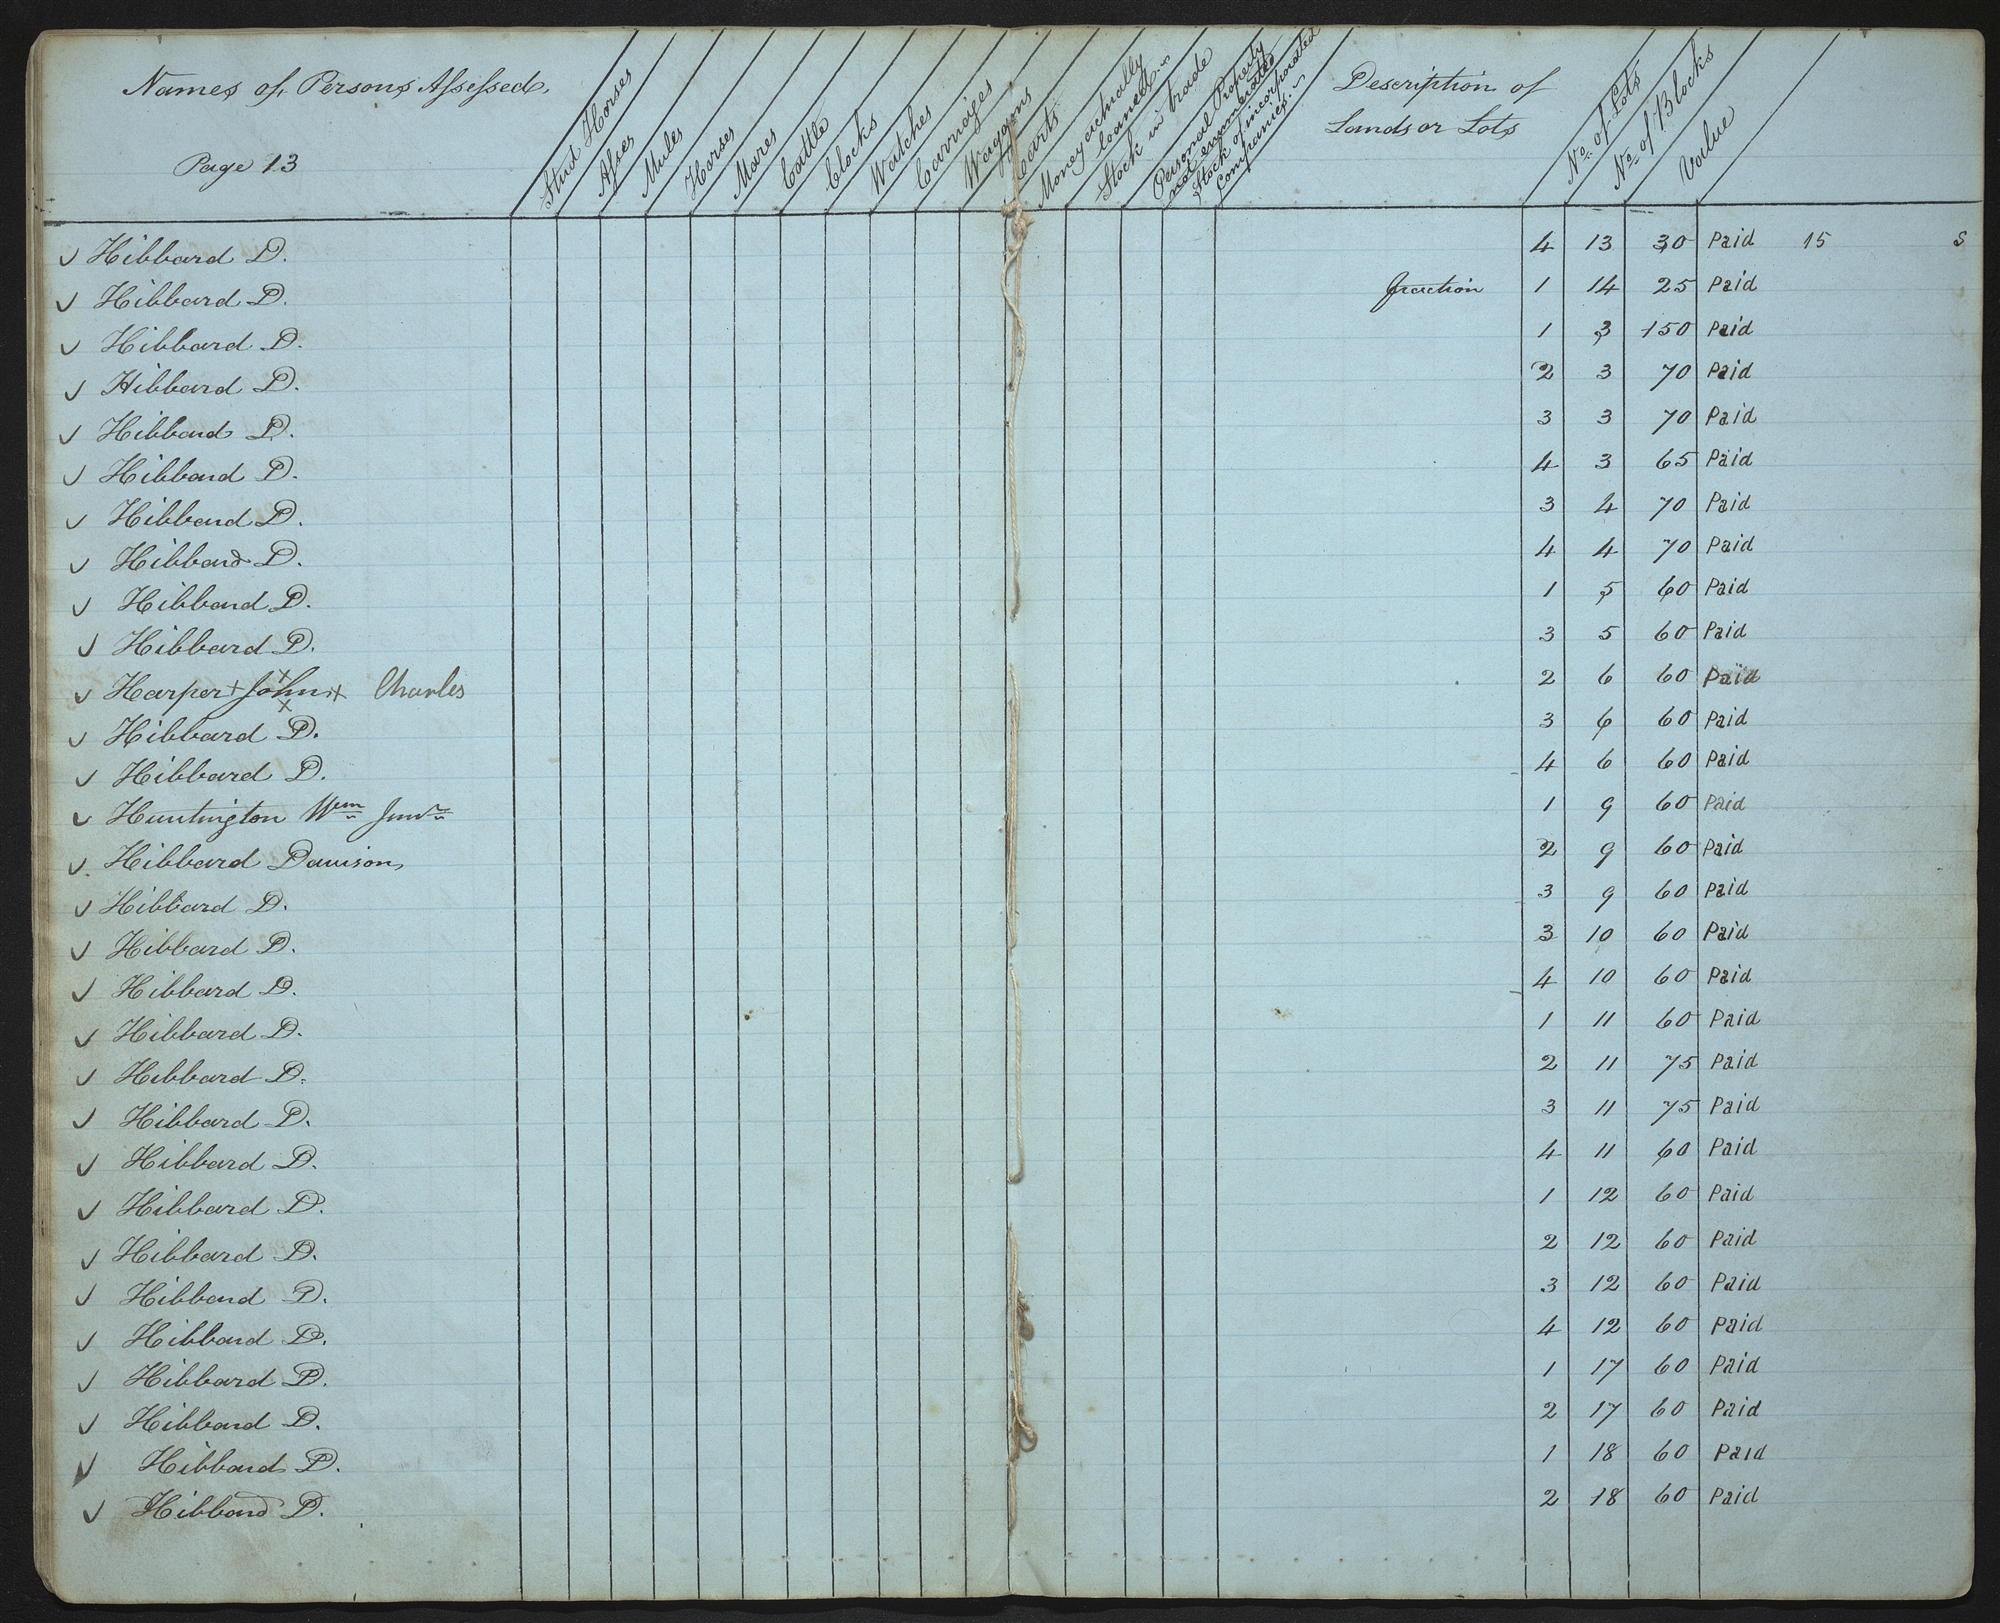 Names of Persons Assessed.
Page 13
Stud Horses
Asses
Mules
Horses
Mares
Cattle
Clocks
Watches
Carriages
Waggons
Carts
Money actually loaned
Stock in trade
Personal Property not enumerated
Stock of incorporated Companies.
Description of
Lands or Lots
No. of Lots
No. of Blocks
Value
✓ Hibbard D. 4 13 30 Paid 15 S
✓ Hibbard D. fraction 1 14 25 Paid
✓ Hibbard D. 1 3 150 Paid
✓ Hibbard D. 2 3 70 Paid
✓ Hibbard D. 3 3 70 Paid
✓ Hibbard D. 4 3 65 Paid
✓ Hibbard D. 3 4 70 Paid
✓ Hibbard D. 4 4 70 Paid
✓ Hibbard D. 1 5 60 Paid
✓ Hibbard D. 3 5 60 Paid
✓ Harper + John + Charles 2 6 60 Paid
✓ Hibbard D. 3 6 60 Paid
✓ Hibbard D. 4 6 60 Paid
✓ Huntington Wm Junr 1 9 60 Paid
✓ Hibbard Davison 2 9 60 Paid
✓ Hibbard D. 3 9 60 Paid
✓ Hibbard D. 3 10 60 Paid
✓ Hibbard D. 4 10 60 Paid
✓ Hibbard D. 1 11 60 Paid
✓ Hibbard D. 2 11 75 Paid
✓ Hibbard D. 3 11 75 Paid
✓ Hibbard D. 4 11 60 Paid
✓ Hibbard D. 1 12 60 Paid
✓ Hibbard D. 2 12 60 Paid
✓ Hibbard D. 3 12 60 Paid
✓ Hibbard D. 4 12 60 Paid
✓ Hibbard D. 1 17 60 Paid
✓ Hibbard D. 2 17 60 Paid
✓ Hibbard D. 1 18 60 Paid
✓ Hibbard D. 2 18 60 Paid